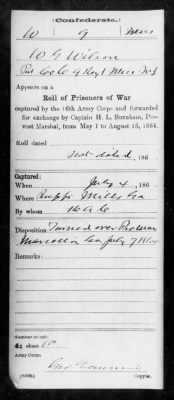 (Confederate.)
W G Miss
W G Wilson
Pvt Co G 9 Regt Miss Inf
Appears on a
Roll of Prisoners of War
captured by the 16th Army Corps and forwarded
for exchange by Captain H. L. Burnham, Pro-
vost Marshal, from May 1 to August 15, 1864.
Roll dated
Not dated, 186
Captured:
When July 4, 186
Where Ruff's Mills Ga
By whom 16 A C
Disposition Turned over Pro Mar
Marietta Ga July 7 1864
Remarks:
Number of roll:
4; sheet
Army Corps:
Copyist.